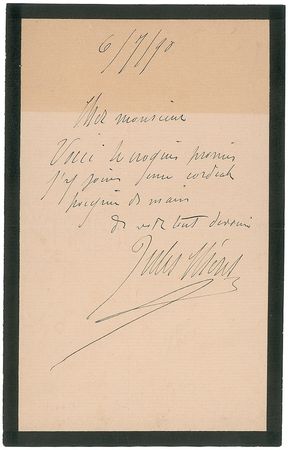 6/7/90
Cher monsieur
Voici le croquis promis
j'y joins une cordiale
poignée de main
de votre tout dévoué
Jules Chéret